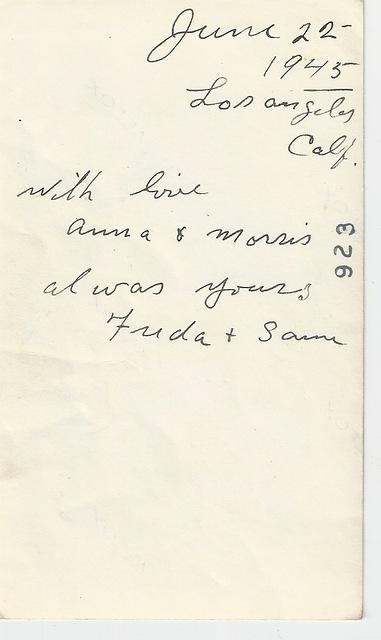 June 22
1945
Los angeles
Calf.
with love
anna & morris
923
alwas yours
Frida + Sam